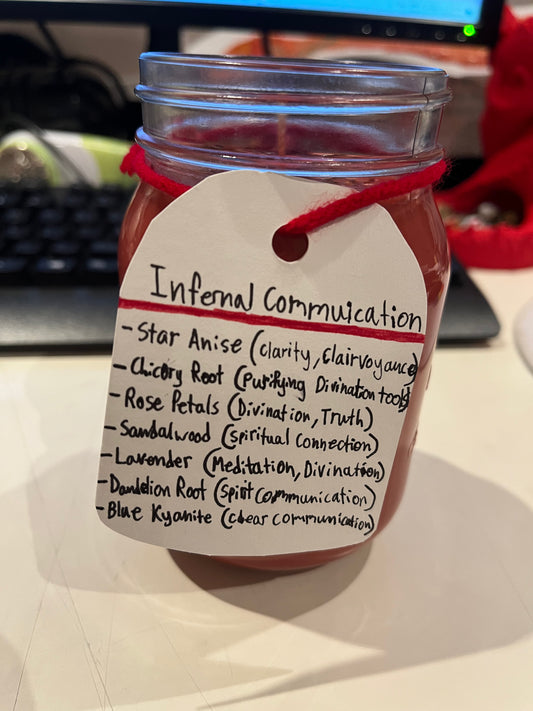 Infernal Commuication
- Star Anise (clarity, clairvoyance)
- Chicory Root (Purifying Divination tools)
- Rose Petals (Divination, Truth)
- Sandalwood (spiritual connection)
- Lavender (Meditation, Divination)
- Dandelion Root (spirit communication)
- Blue Kyanite (clear communication)